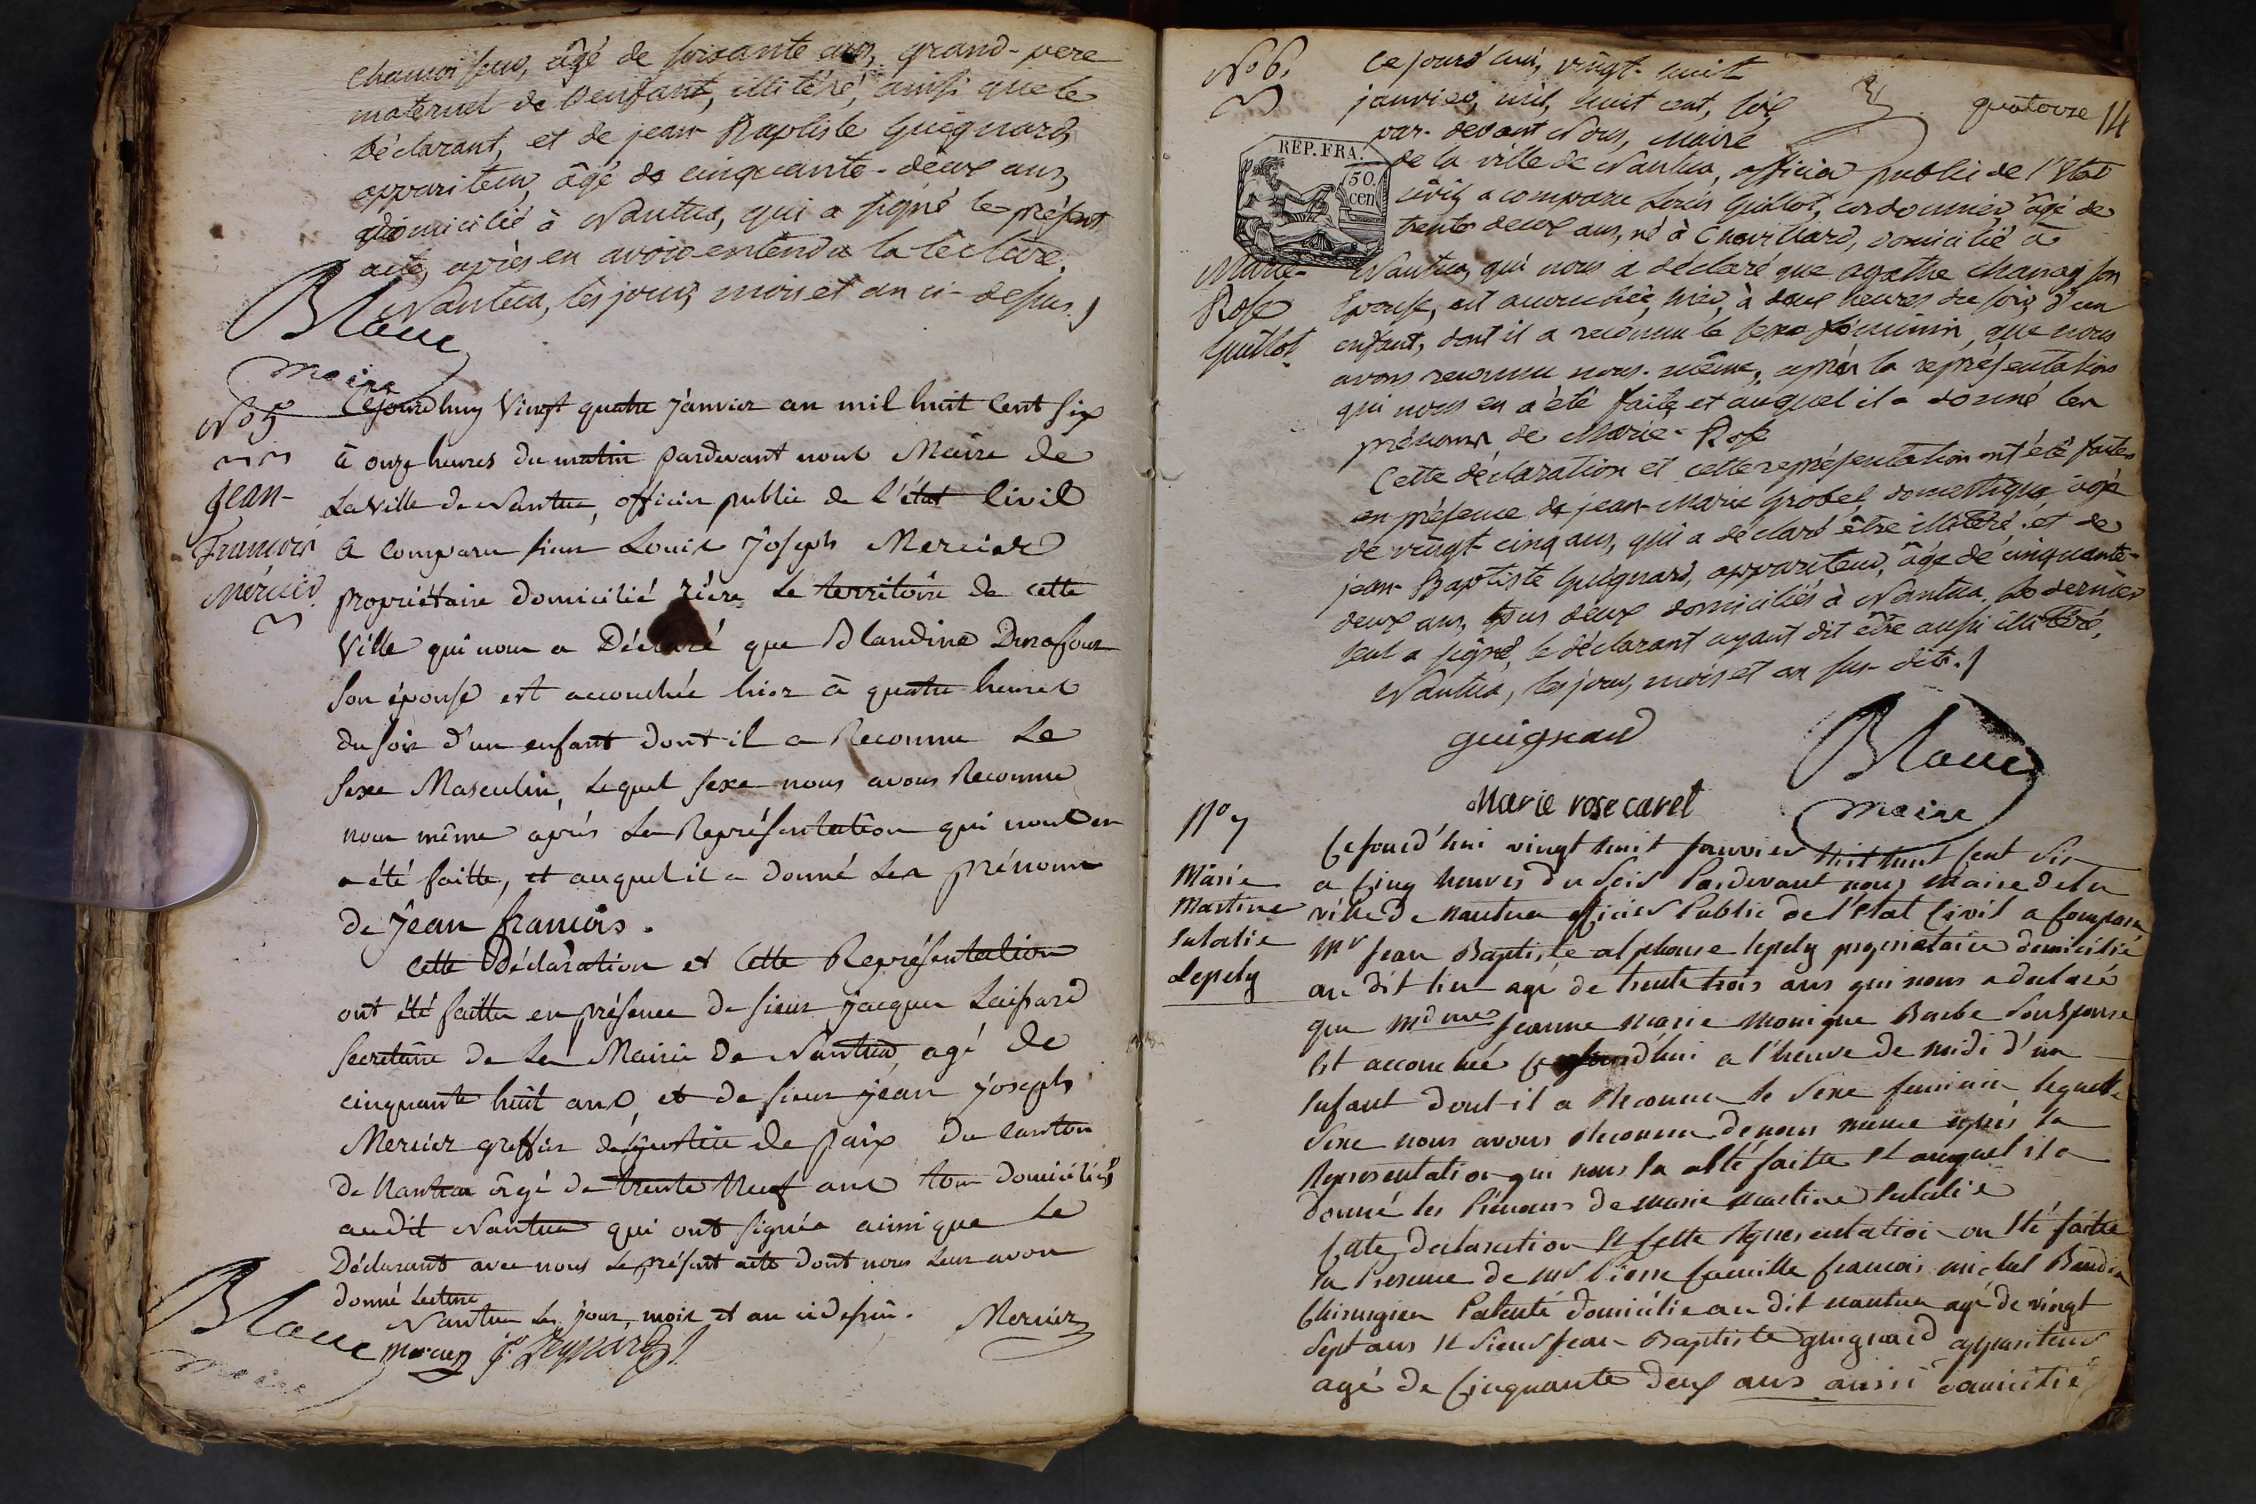 chamoiseur, âgé de soixante ans, grand-pere
maternel de l'enfant, illitéré, ainsi que le
déclarant, et de jean-Baptiste Guignard,
appariteur, âgé de cinquante-deux ans,
domicilié à Nantua, qui a signé le présent
acte, après en avoir entendu la lecture.
Nantua, les jour, mois et an ci-dessus.
Blanc
maire
No 5e
Jean-
François
Mercier.
Cejourdhuy Vingt quatre Janvier an mil huit Cent Six
à onze heures du matin pardevant nous Maire de
La Ville de Nantua, officier public de l'état Civil
a Comparu sieur Louis Joseph Mercier
propriétaire domicilié rière le territoire de cette
Ville qui nous a Déclaré que Blandine Durafour
Son épouse est accouchée hier à quatre heures
du soir d'un enfant dont il a Reconnu Le
Sexe Masculin, Lequel sexe nous avons Reconnu
nous même après La Représentation qui nous en
a été faitte, et auquel il a donné Les prénoms
de Jean françois.
Cette Déclaration et Cette Représentation
ont été faitte en présence de sieur jacques Leispard
Secretaire de La Mairie de Nantua, agé de
cinquante huit ans, et de sieur jean joseph
Mercier greffier de justice de paix du Canton
de Nantua âgé de trente Neuf ans tous domiciliés
audit Nantua qui ont signés ainsi que Le
Déclarant avec nous Le présent acte dont nous Leur avons
donné Lecture
Nantua Les jour, mois et an cidessus.
Mercier
Blanc
maire
mercier
No 6.
quatorze 14
REP. FRA.
50.
cen
Marie-
Rose
Guillot
Ce jourd'hui, vingt-huit
janvier, mil, huit cent, six
par-devant Nous, Maire
de la ville de Nantua, officier public de l'Etat
civil, a comparu Louis Guillot, cordonnier, âgé de
trente deux ans, né à Chevillard, domicilié à
Nantua, qui nous a déclaré que agathe son
épouse, est accouchée, hier, à deux heures du soir, d'un
enfant, dont il a reconnu le sexe féminin, que nous
avons reconnu nous-même, après la représentation
qui nous en a été faite et auquel il a donné les
prénoms de Marie-Rose
Cette déclaration et cette représentation ont été faites
en présence de jean-Marie Grobel, domestique, âgé
de vingt-cinq ans, qui a déclaré être illitéré et de
jean-Baptiste Guignard, appariteur, âgé de cinquante-
deux ans, tous deux domiciliés à Nantua. Le dernier
seul a signé, le déclarant ayant dit être aussi illitéré.
Nantua, les jour, mois et an sus-dits.
guignard
Blanc
maire
Marie rose carel
No 7
Marie
Martine
Eulalie
Lepely
Cejourd'hui vingt huit Janvier Mil huit Cent Six
a Cinq heures du Soir Pardevant nous Maire de la
ville de nantua officier Public de l'état Civil a Comparu
Mr Jean Baptiste alphonse lepely proprietaire domicilié
au dit lieu agé de trente trois ans qui nous a declaré
que Mdme Jeanne Marie Monique Barbe Son Epouse
Est accouchée Cejourd'hui a l'heure de midi d'un
Enfant dont il a Reconnu le Sexe feminin lequelle
Sexe nous avons Reconnu de nous meme après la
Representation qui nous En a été faitte Et auquel il a
donné les Prénoms de marie martine Eulalie
Cette declaration Et Cette Representation on Eté faitte
En Presence de Mr Pierre Camille françois michel Baudin
Chirurgien Patenté domicilié au dit nantua agé de vingt
Sept ans Et Sieur Jean Baptiste guignard appariteur
agé de Cinquante deux ans aussi domicilié